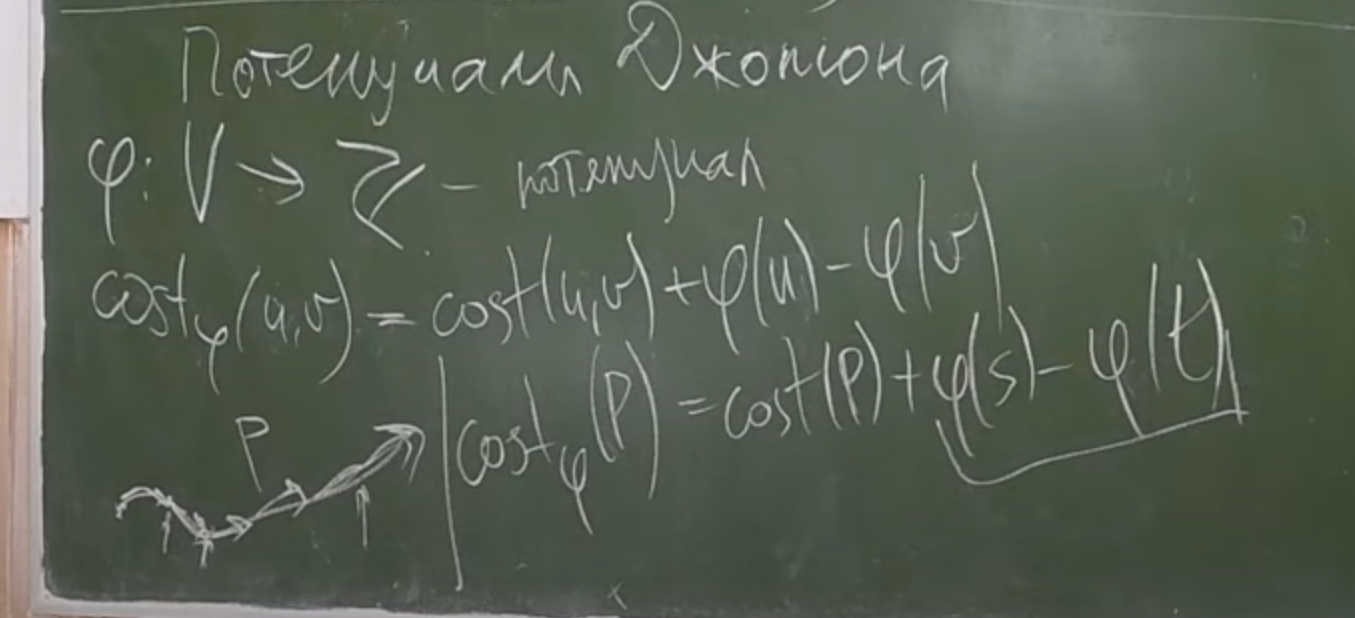 Потенциалы Джонсона
φ: V → ℤ – потенциал
cost_φ(u,v) = cost(u,v) + φ(u) - φ(v)
P
cost_φ(P) = cost(P) + φ(s) - φ(t)